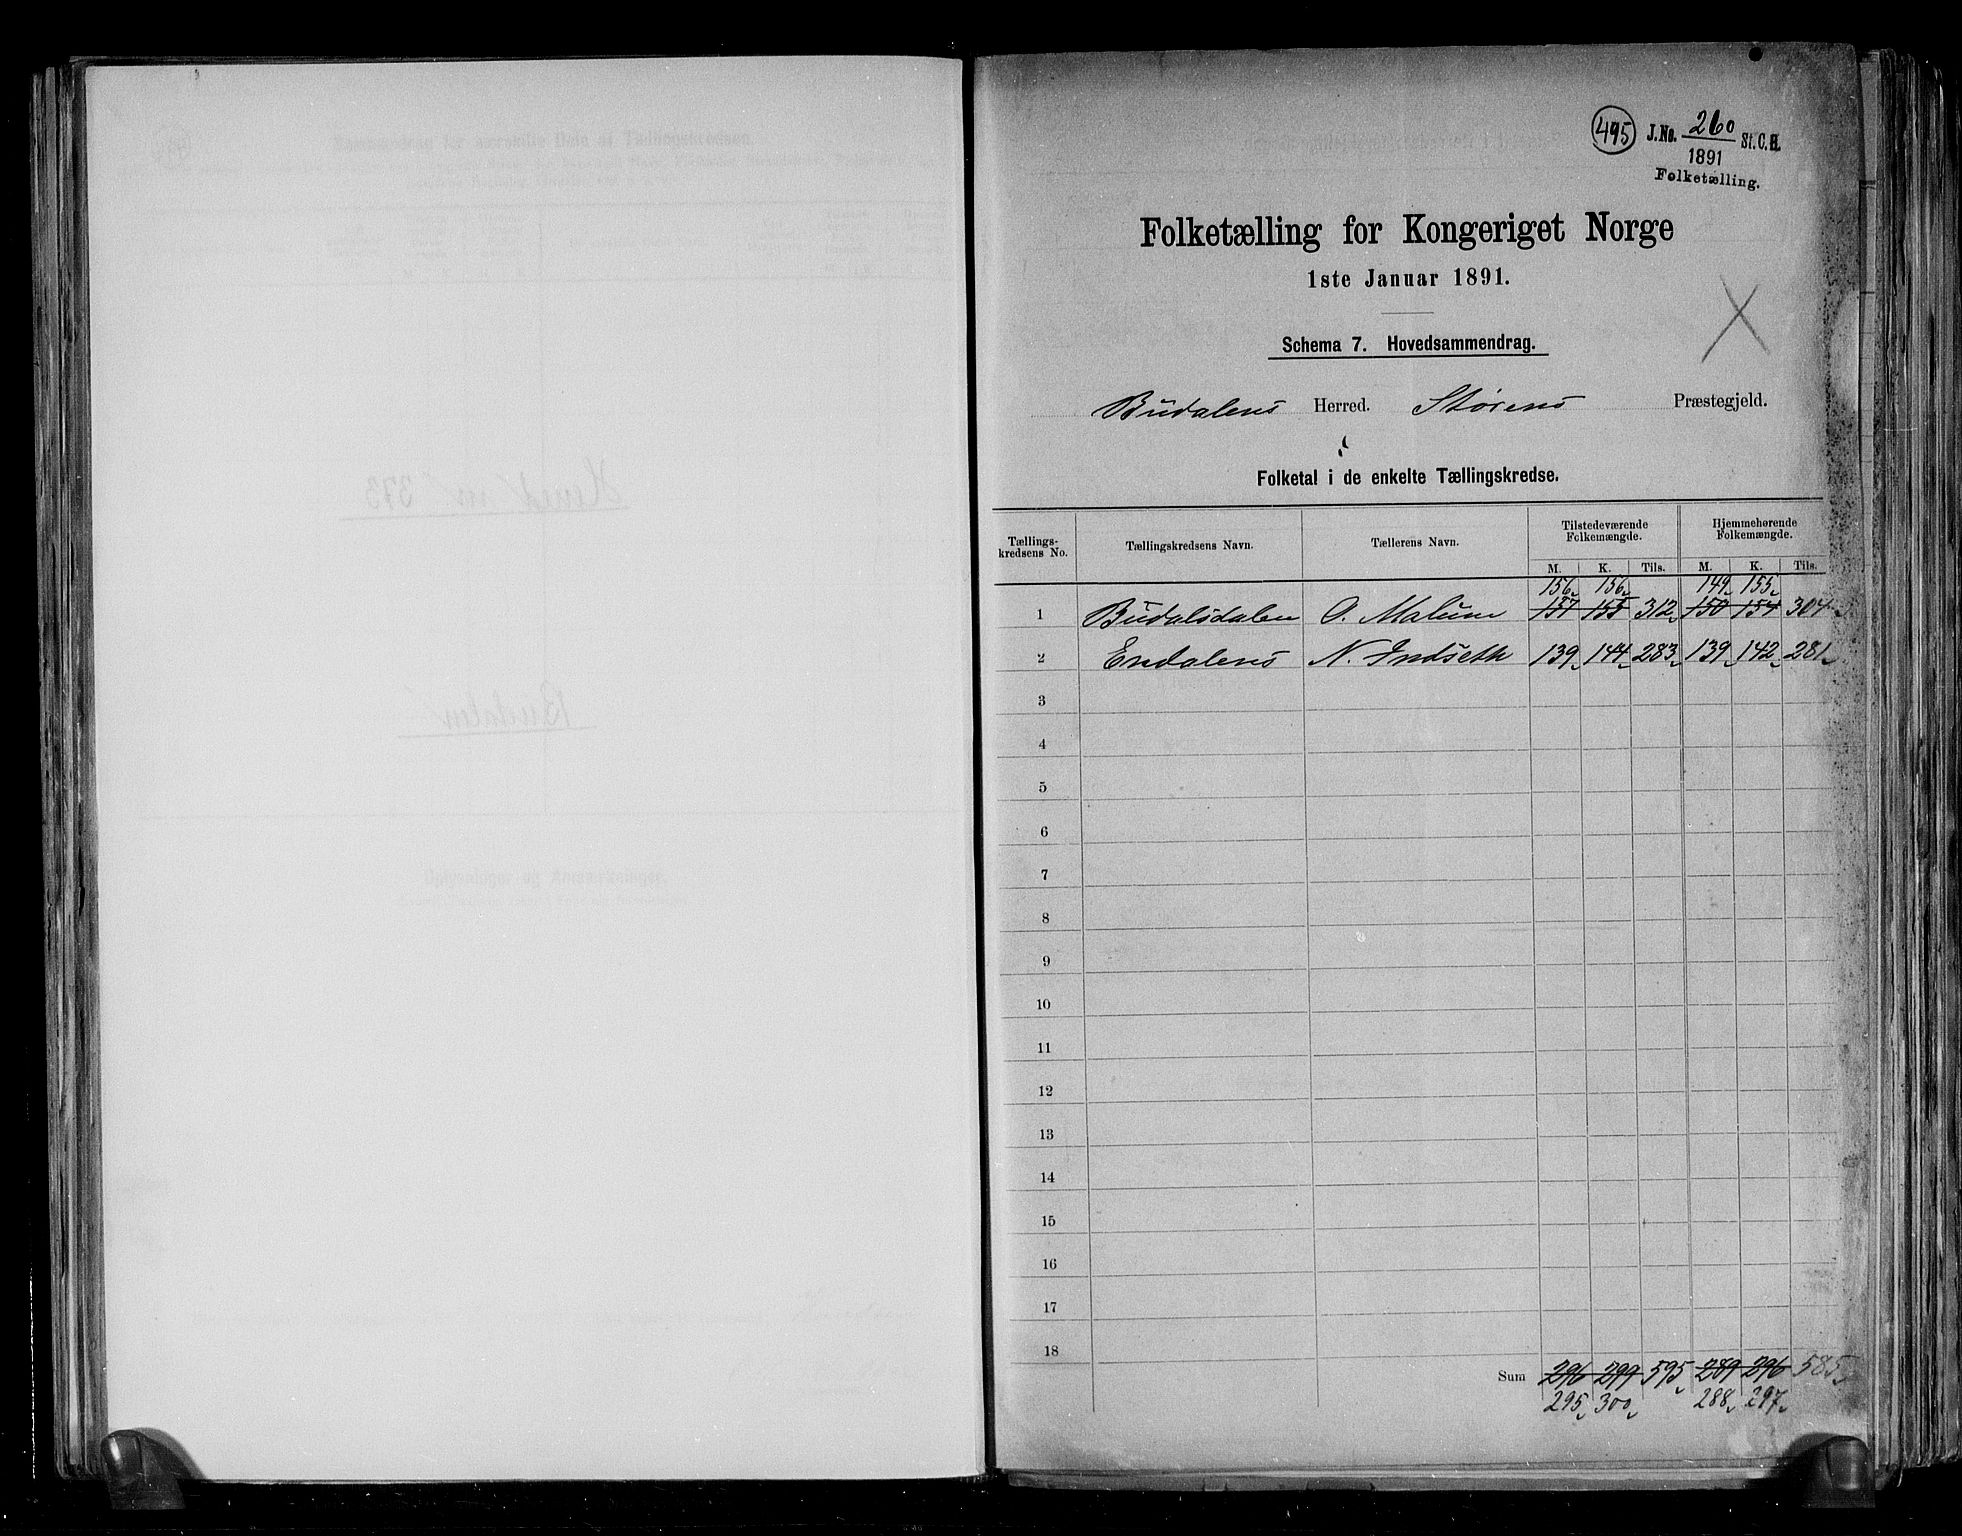 495 J.No. 260 St.C.B.
1891
Folketælling.
Folketælling for Kongeriget Norge
1ste Januar 1891.
Schema 7. Hovedsammendrag.
Budalens Herred. Størens Præstegjeld.
Folketal i de enkelte Tællingskredse.
Tællings-kredsens No. Tællingskredsens Navn. Tællerens Navn. Tilstedeværende Folkemængde. Hjemmehørende Folkemængde.
M. K. Tils. M. K. Tils.
156 156 149 155
1 Budalsdalen O. Malum 157 155 312 150 154 304
2 Endalens N. Indseth 139 144 283 139 142 281
3
4
5
6
7
8
9
10
11
12
13
14
15
16
17
18
Sum 296 299 595 289 296 585
295 300 288 297